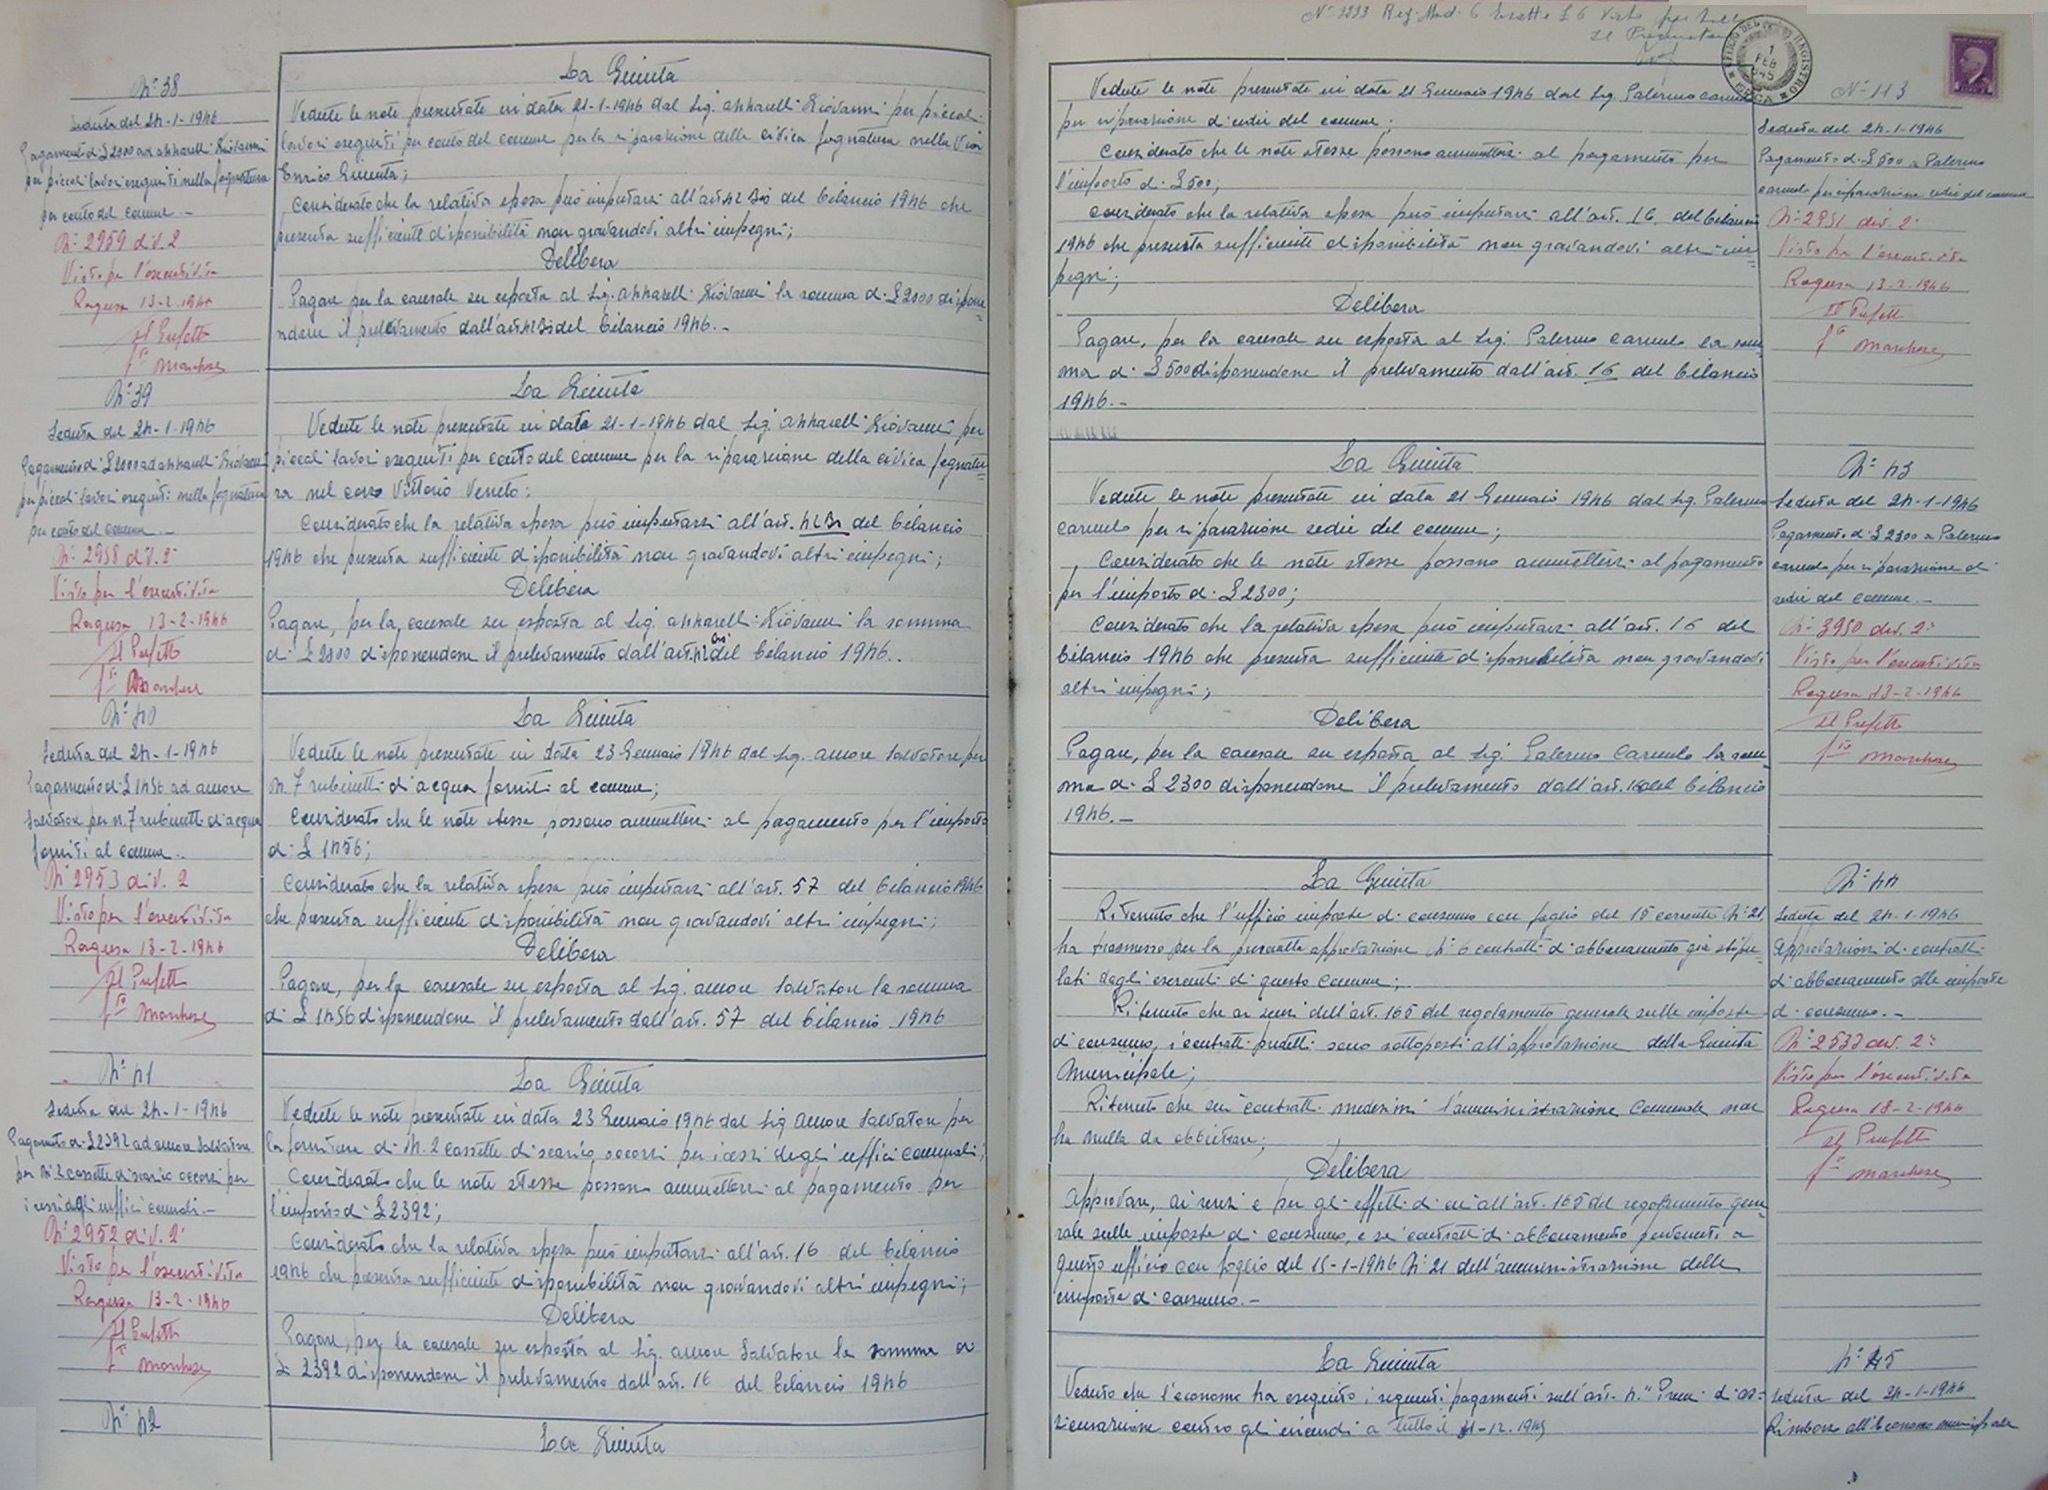 N° 38
Seduta del 24-1-1946
Pagamenti di £ 2000 ad Giovanni
per piccoli lavori eseguiti nella fognatura
per conto del comune -
N° 2959 div. 2
Visto per l'esecutività
Ragusa 13-2-1946
Il Prefetto
f.to Marchese
La Giunta
Vedute le note presentate in data 21-1-1946 dal Sig. Giovanni per piccoli
lavori eseguiti per conto del comune per la riparazione della civica fognatura nella Via
Enrico Giunta;
Considerato che la relativa spesa può imputarsi all'art. 42 Bis del bilancio 1946 che
presenta sufficiente disponibilità non gravandovi altri impegni;
Delibera
Pagare per la causale su esposta al Sig. Giovanni la somma di £ 2000 dispone=
ndone il prelevamento dall'art. 42 Bis del bilancio 1946.-
N° 39
Seduta del 24-1-1946
Pagamento di £ 2000 ad Giovanni
per piccoli lavori eseguiti nella fognatura
per conto del comune -
N° 2958 div. 2°
Visto per l'esecutività
Ragusa 13-2-1946
Il Prefetto
f.to Marchese
La Giunta
Vedute le note presentate in data 21-1-1946 dal Sig. Giovanni per
piccoli lavori eseguiti per conto del comune per la riparazione della civica fognatu=
ra nel corso Vittorio Veneto;
Considerato che la relativa spesa può imputarsi all'art. 42 Bis del bilancio
1946 che presenta sufficiente disponibilità non gravandovi altri impegni;
Delibera
Pagare, per la causale su esposta al Sig. Giovanni la somma
di £ 2000 disponendone il prelevamento dall'art. 42 Bis del bilancio 1946..
N° 40
Seduta del 24-1-1946
Pagamento di £ 1456 ad Amore
Salvatore per n. 7 rubinetti di acqua
forniti al comune..
N° 2953 div. 2
Visto per l'esecutività
Ragusa 13-2-1946
Il Prefetto
f.to Marchese
La Giunta
Vedute le note presentate in data 23 Gennaio 1946 dal Sig. Amore Salvatore per
N. 7 rubinetti di acqua forniti al comune;
Considerato che le note stesse possono ammettersi al pagamento per l'importo
di £ 1456;
Considerato che la relativa spesa può imputarsi all'art. 57 del bilancio 1946
che presenta sufficiente disponibilità non gravandovi altri impegni;
Delibera
Pagare, per la causale su esposta al Sig. Amore Salvatore la somma
di £ 1456 disponendone il prelevamento dall'art. 57 del bilancio 1946
N° 41
Seduta del 24-1-1946
Pagamento di £ 2392 ad Amore Salvatore
per N. 2 cassette di scarico occorsi per
i cessi degli uffici comunali.-
N° 2952 div. 2°
Visto per l'esecutività
Ragusa 13-2-1946
Il Prefetto
f.to Marchese
La Giunta
Vedute le note presentate in data 23 Gennaio 1946 dal Sig. Amore Salvatore per
la fornitura di N. 2 cassette di scarico occorsi per i cessi degli uffici comunali;
Considerato che le note stesse possono ammettersi al pagamento per
l'importo di £ 2392;
Considerato che la relativa spesa può imputarsi all'art. 16 del bilancio
1946 che presenta sufficiente disponibilità non gravandovi altri impegni;
Delibera
Pagare, per la causale su esposta al Sig. Amore Salvatore la somma di
£ 2392 disponendone il prelevamento dall'art. 16 del bilancio 1946
N° 42
La Giunta
Il Procuratore
UFFICIO DEL REGISTRO
1 FEB 945
N° 113
Vedute le note presentate in data 21 Gennaio 1946 dal Sig. Palermo Carmelo
per riparazione di sedie del comune;
Considerato che le note stesse possono ammettersi al pagamento per
l'importo di £ 500;
Considerato che la relativa spesa può imputarsi all'art. 16 del bilancio
1946 che presenta sufficiente disponibilità non gravandovi altri im=
pegni;
Delibera
Pagare, per la causale su esposta al Sig. Palermo Carmelo la som=
ma di £ 500 disponendone il prelevamento dall'art. 16 del bilancio
1946.-
Seduta del 24-1-1946
Pagamento di £ 500 a Palermo
Carmelo per riparazione sedie del comune
N° 2951 div. 2°
Visto per l'esecutività
Ragusa 13-2-1946
Il Prefetto
f.to Marchese
La Giunta
Vedute le note presentate in data 21 Gennaio 1946 dal Sig. Palermo
Carmelo per riparazione sedie del comune;
Considerato che le note stesse possono ammettersi al pagamento
per l'importo di £ 2300;
Considerato che la relativa spesa può imputarsi all'art. 16 del
bilancio 1946 che presenta sufficiente disponibilità non gravandovi
altri impegni;
Delibera
Pagare, per la causale su esposta al Sig. Palermo Carmelo la som=
ma di £ 2300 disponendone il prelevamento dall'art. 16 del bilancio
1946.-
N° 43
Seduta del 24-1-1946
Pagamento di £ 2300 a Palermo
Carmelo per riparazione di
sedie del comune.-
N° 3950 div. 2°
Visto per l'esecutività
Ragusa 13-2-1946
Il Prefetto
f.to Marchese
La Giunta
Ritenuto che l'ufficio imposte di consumo con foglio del 15 corrente N° 21,
ha trasmesso per la prescritta approvazione N° 6 contratti di abbonamento già stipu=
lati dagli esercenti di questo Comune;
Ritenuto che ai sensi dell'art. 165 del regolamento generale sulle imposte
di consumo, i contratti predetti sono sottoposti all'approvazione della Giunta
Municipale;
Ritenuto che sui contratti medesimi l'amministrazione Comunale non
ha nulla da obbiettare;
Delibera
Approvare, ai sensi e per gli effetti di cui all'art. 165 del regolamento gene=
rale sulle imposte di consumo, i sei contratti di abbonamento pervenuti a
questo ufficio con foglio del 15-1-1946 N° 21 dell'amministrazione delle
imposte di consumo.-
N° 44
Seduta del 24-1-1946
Approvazioni di contratti
di abbonamento alle imposte
di consumo.-
N° 2533 div. 2°
Visto per l'esecutività
Ragusa 18-2-1946
Il Prefetto
f.to Marchese
La Giunta
Veduto che l'economo ha eseguito i seguenti pagamenti sull'art. 4 "Prem. di as=
sicurazione contro gli incendi a tutto il 31-12-1945
N° 45
Seduta del 24-1-1946
Rimborso all'Economo municipale